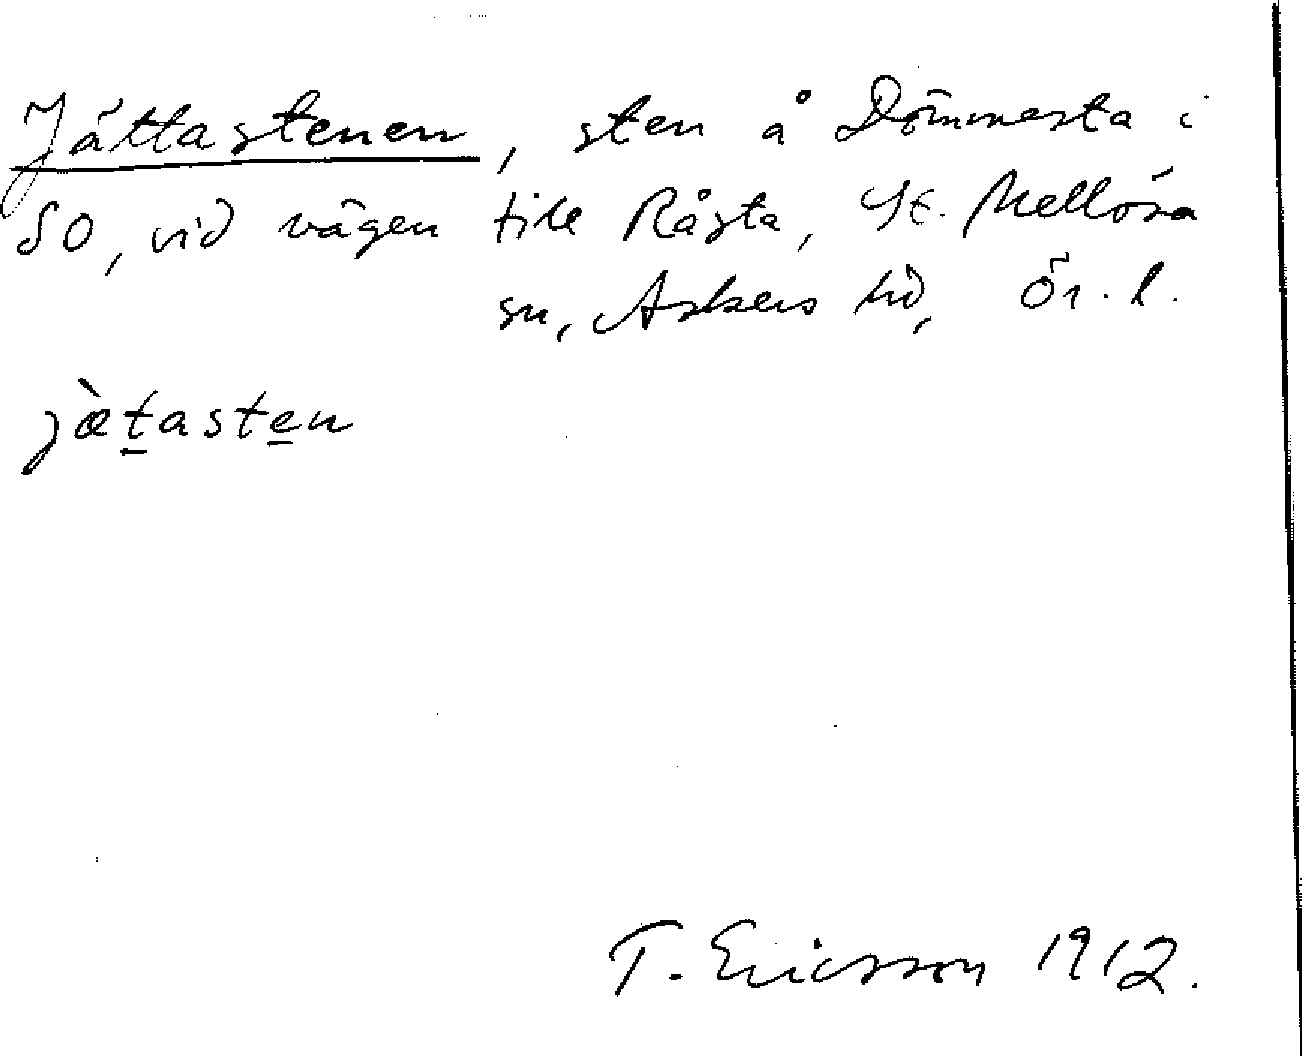 Jättastenen, sten å Dömmesta i
SO, vid vägen till Råsta, St. Mellösa
sn, Askers hd, Ör. l.
jæ̀t̲aste̲n
T. Ericsson 1912.